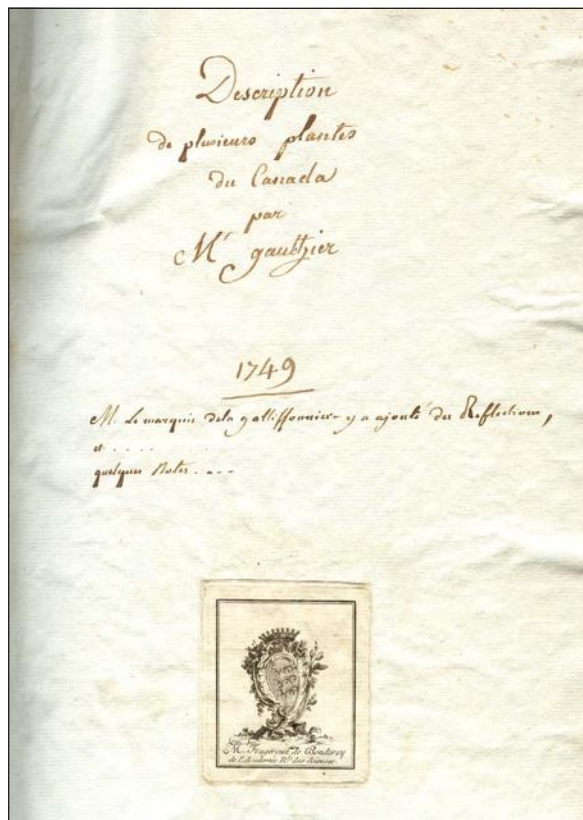 Description
de plusieurs plantes
du Canada
par
Mr gauthier
1749
M. Le marquis dela gallissonniere y a ajouté des Reflections,
et . . . .
quelques Notes . . . .
M. Fougeroux de Bondaroy
de l'Academie Rle. des Sciences.